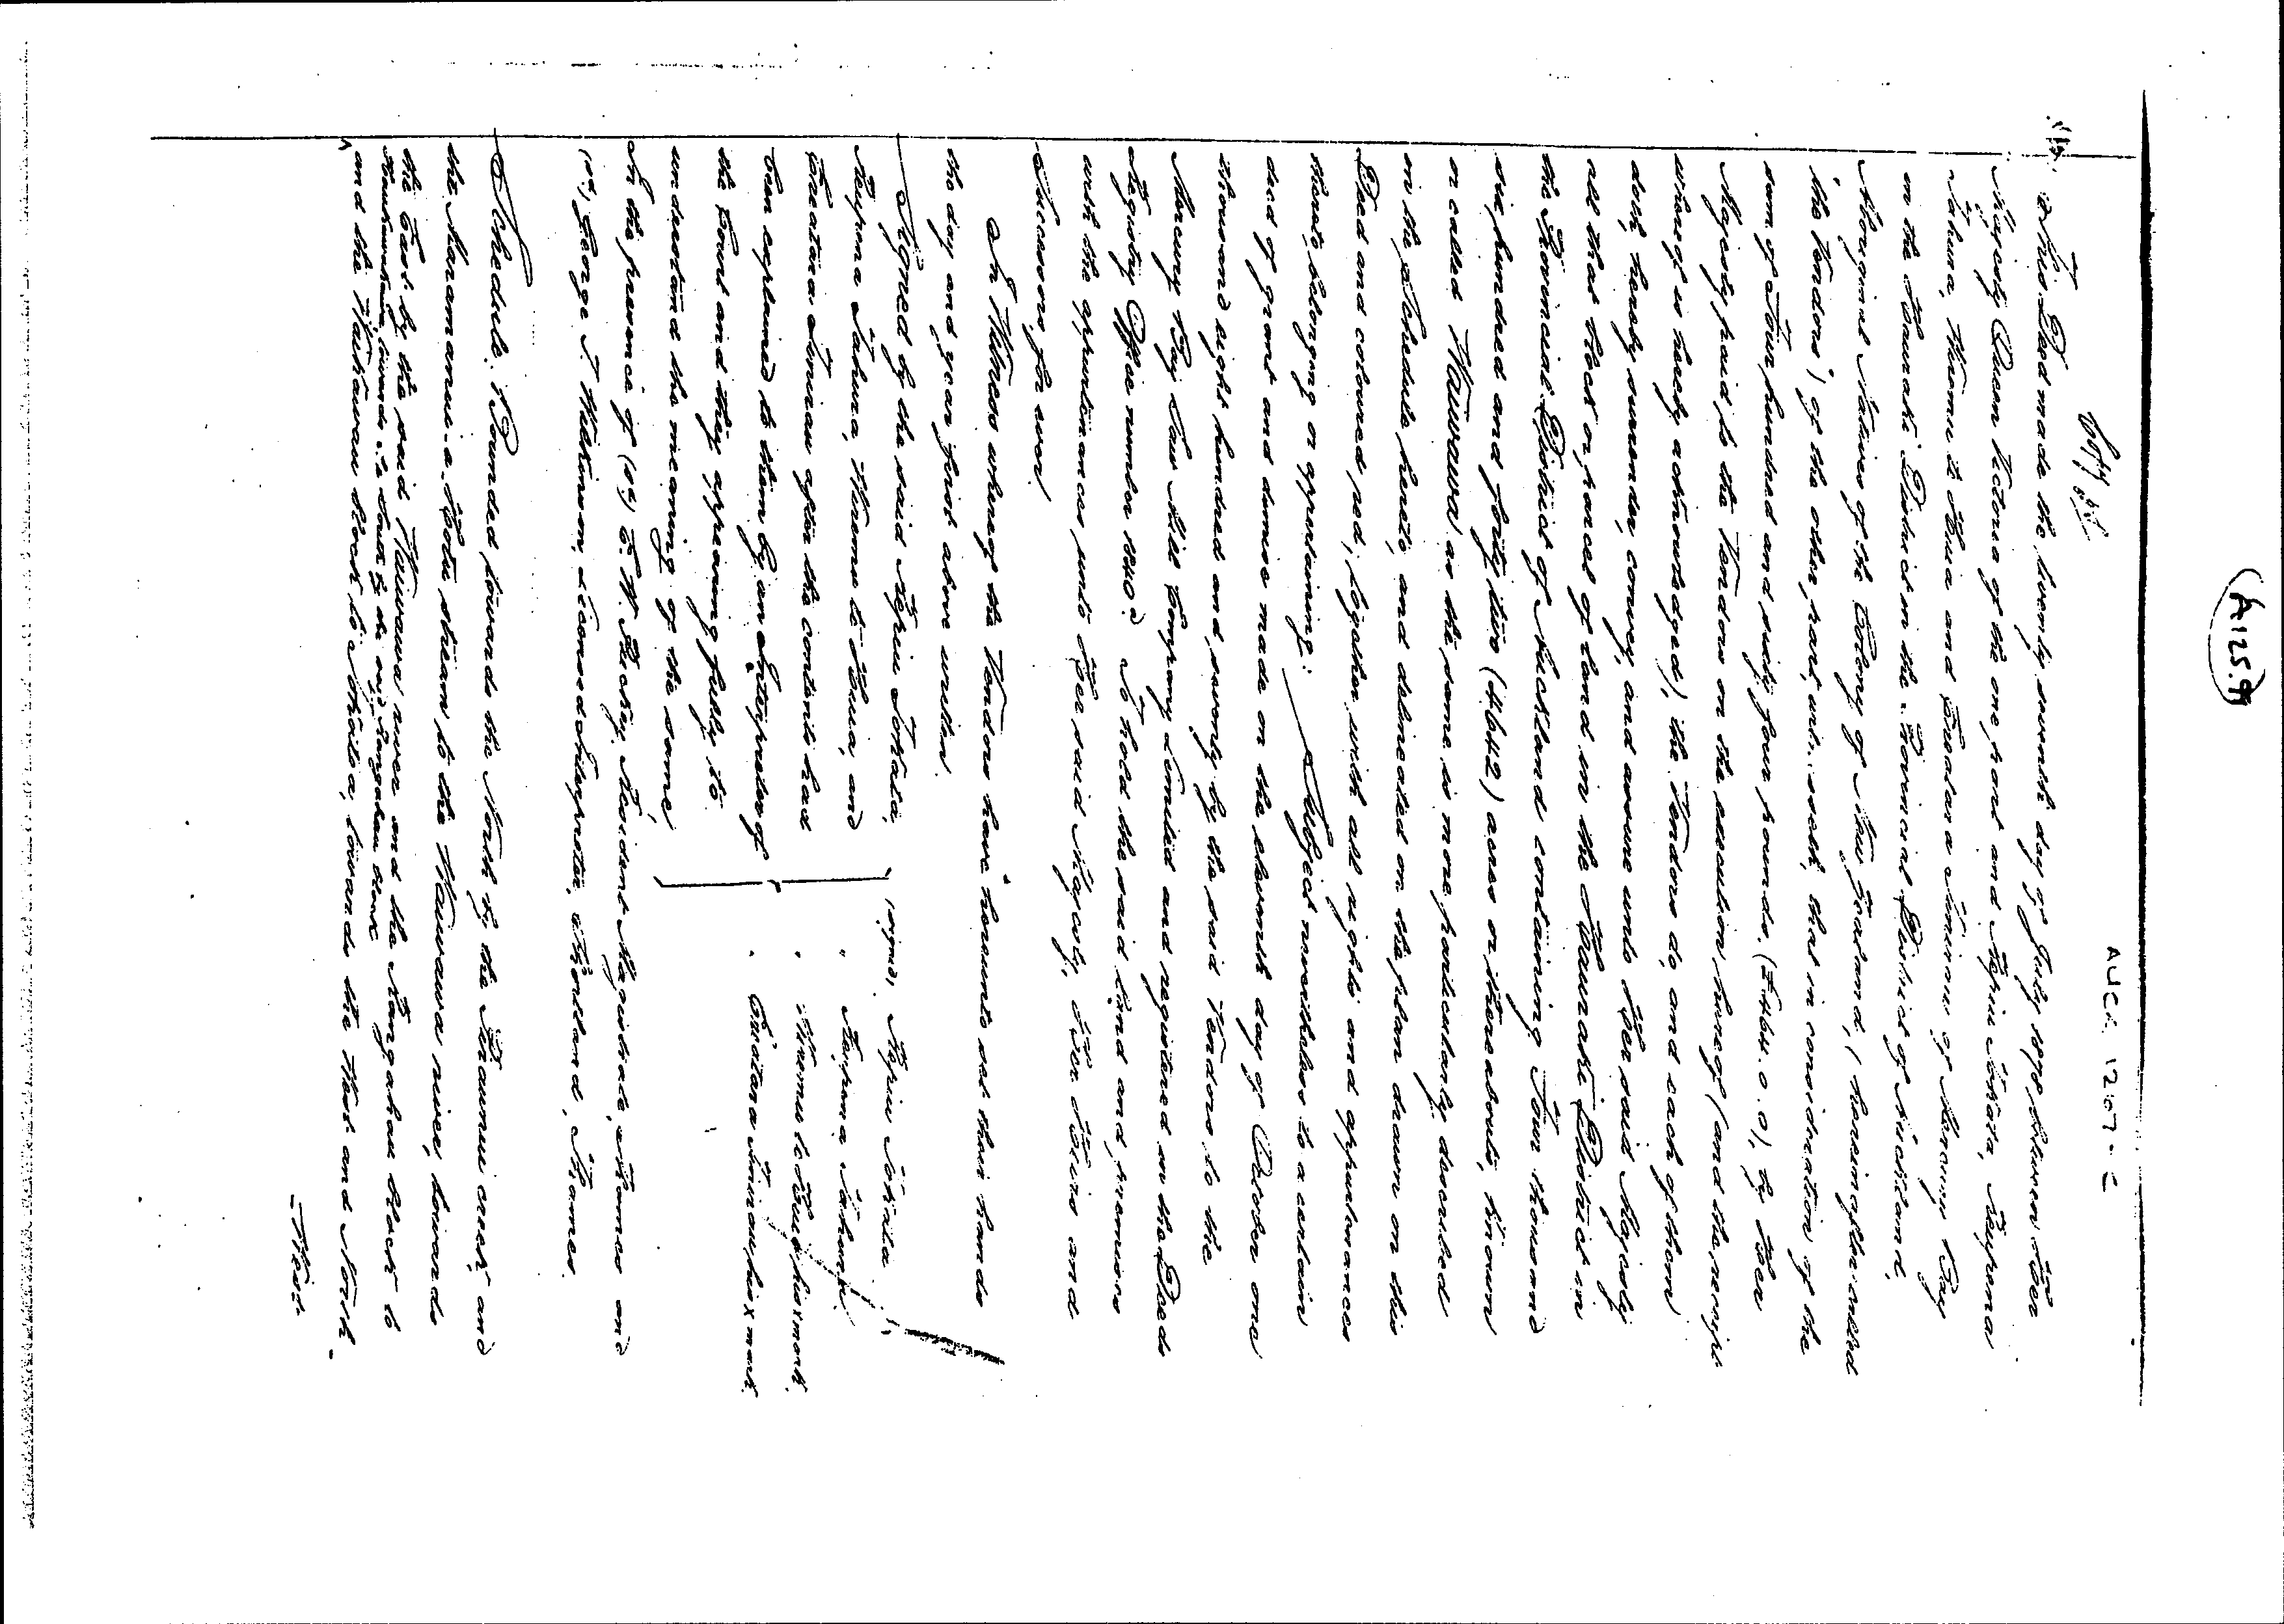 (A125.99
AUCK 1207-C
Copy of
This Deed made the twenty seventh day of July 1878, between Her
Majesty Queen Victoria of the one part and Repiu Tohata, Raupena
Tahura, Wiremu te Hua and of Mercury Bay
in the Hauraki District in the Provincial District of Auckland,
Aboriginal Natives of the Colony of New Zealand, (hereinafter called
"the Vendors") of the other part, that in consideration of the
sum of Four hundred and sixty four pounds. (£464.0.0), by Her
Majesty paid to the Vendors on the execution hereof (and the receipt
whereof is hereby acknowledged), the Vendors do, and each of them
doth, hereby surrender, convey, and assure unto Her said Majesty
all that block or parcel of land in the Hauraki District in
the Provincial District of Auckland containing Four thousand
six hundred and forty two (4642) acres or thereabouts, known
or called Waiwawa as the same is more particularly described
in the Schedule hereto, and delineated on the plan drawn on this
Deed and coloured red, together with all rights and appurtenances
thereto belonging or appertaining: Subject nevertheless to a certain
deed of grant and demise made on the eleventh day of October one
thousand eight hundred and seventy by the said Vendors to the
Mercury Bay Saw Mill Company Limited and registered in the Deeds
Registry Office number To hold the said land and premises
with the appurtenances unto Her said Majesty, Her Heirs and
Successors for ever.
In Witness whereof the Vendors have hereunto set their hands
the day and year first above written.
Signed by the said Repiu Tohata,
Raupena Tahura, Wiremu te Hua, and
after the contents had
been explained to them by an Interpreter of
the Court and they appearing fully to
understand the meaning of the same,
(signed), Repiu Tohata
" Raupena Tahura.
" Wiremu te Hua his x mark.
" his x mark.
In the presence of Resident Magistrate, Thames and
George T. Wilkinson, Licensed Interpreter, Shortland, Thames.
Schedule. Bounded towards the North by the creek, and
the stream to the Waiwawa river, towards
the East by the said Waiwawa river and the Rangahau block to
towards the South by the said Rangahau block
and the block to towards the West and North-
-West.